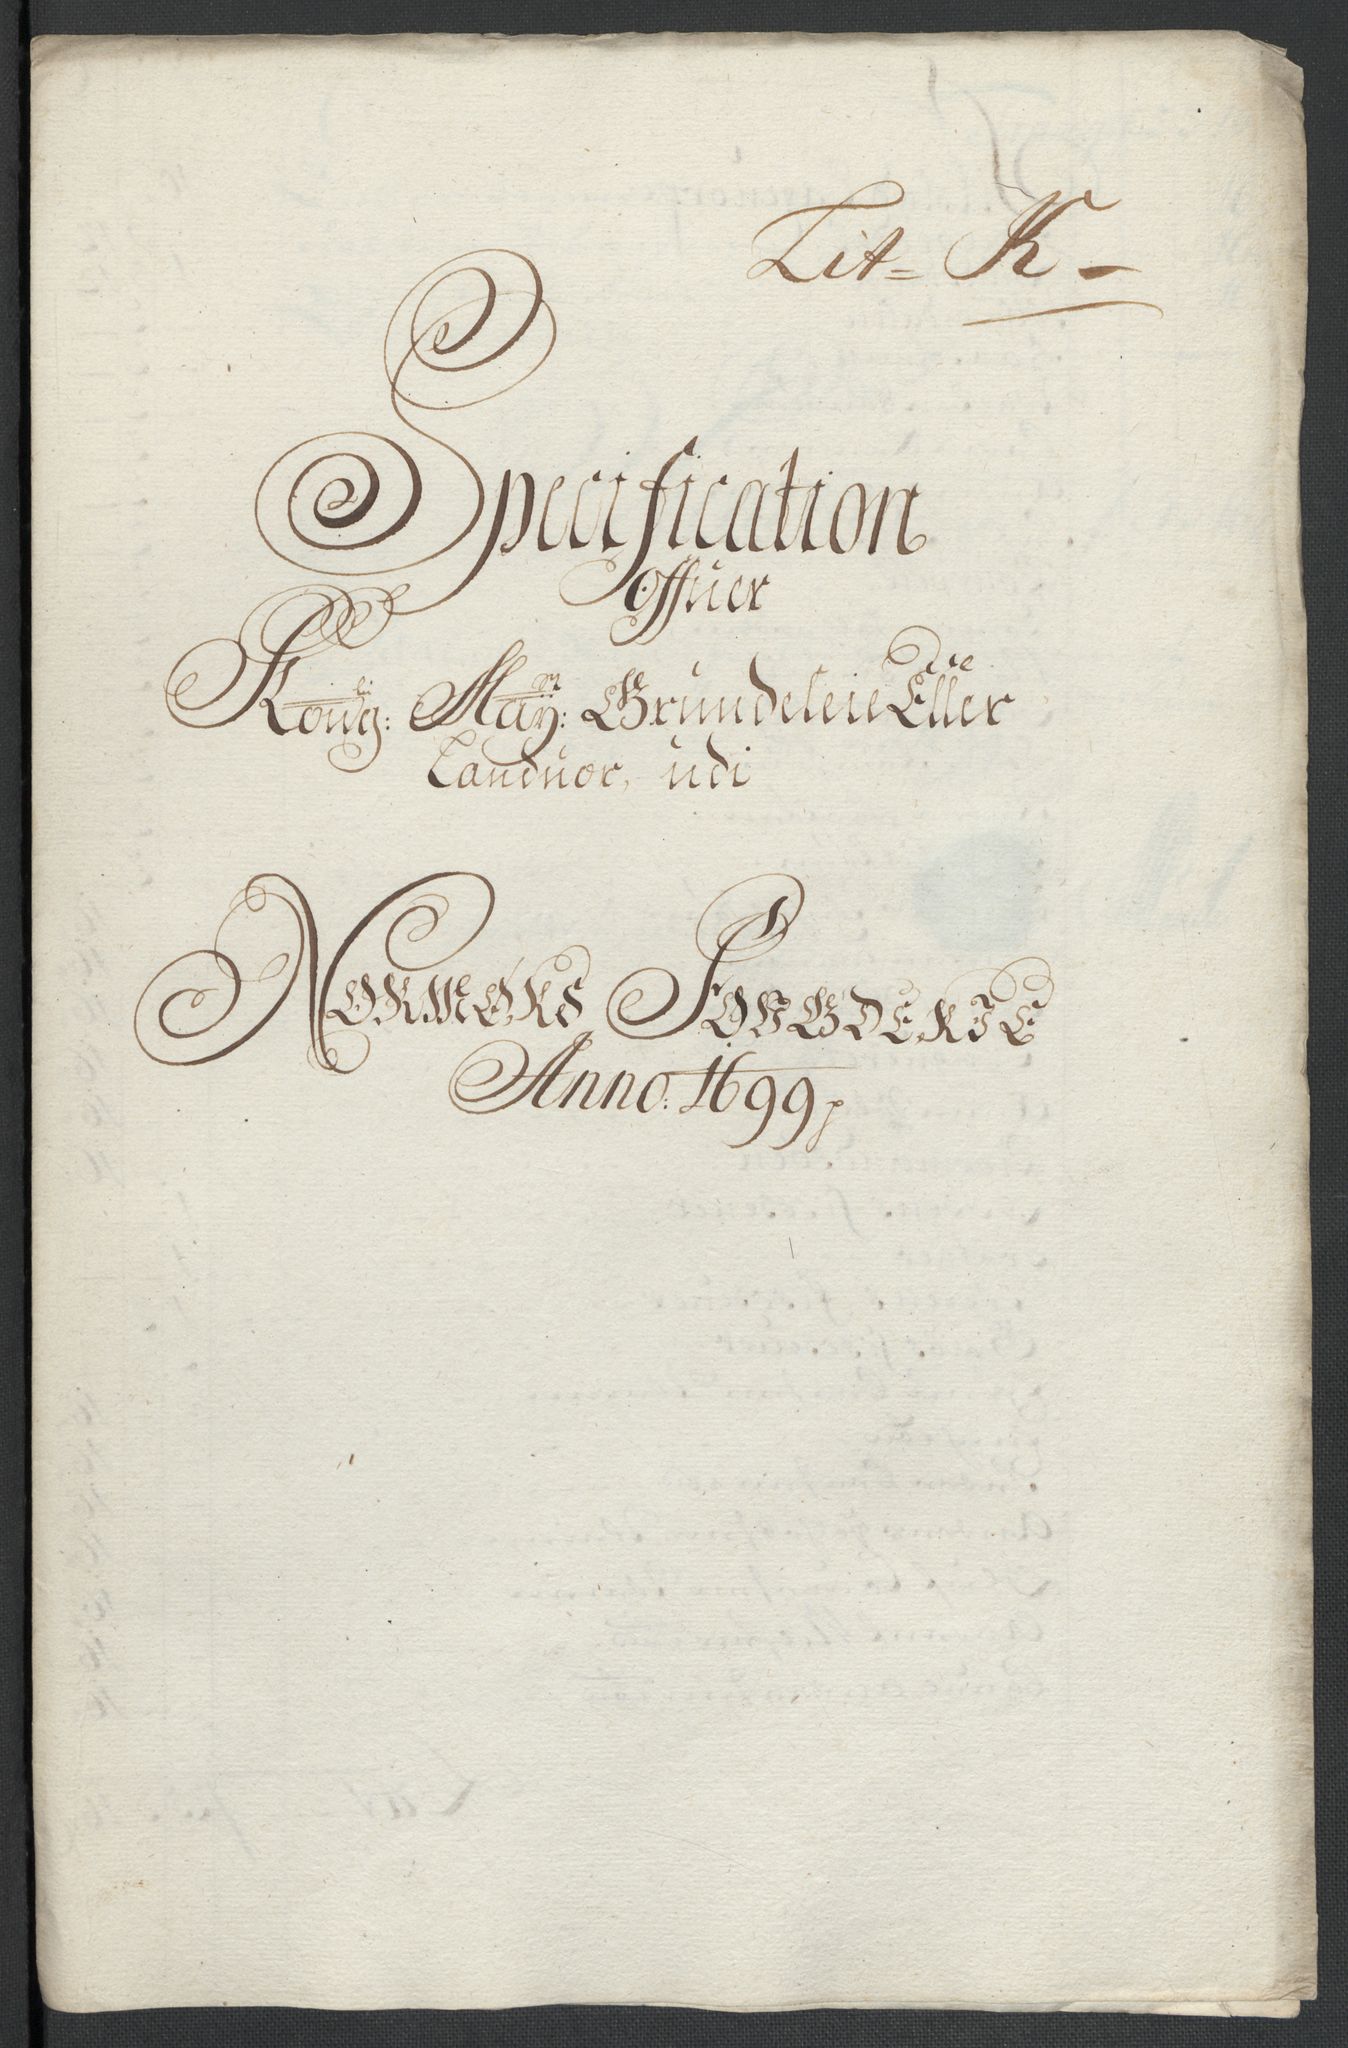 Lit= K-
Specification
Offuer
Kong: li May: tt Grundeleie Eller
Landuor, udi
NORMØRS FOUGDERIE
Anno: 1699